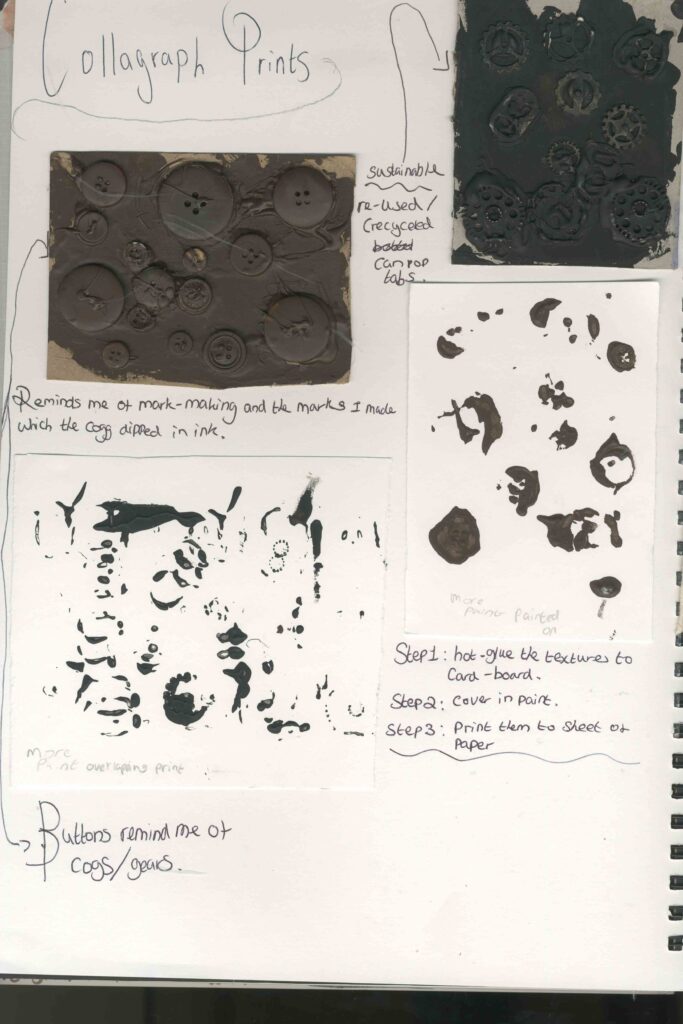 Collagraph Prints
sustainable
re-used/
(recycled
can pop
tabs.
Reminds me of mark-making and the marks I made
which the cogg dipped in ink.
more
painer painted
on
Step1: hot-glue the textures to
Card-board.
Step2: Cover in paint.
Step3: Print them to sheet of
Paper
more
Print overlapping print
Buttons remind me of
cogs/gears.